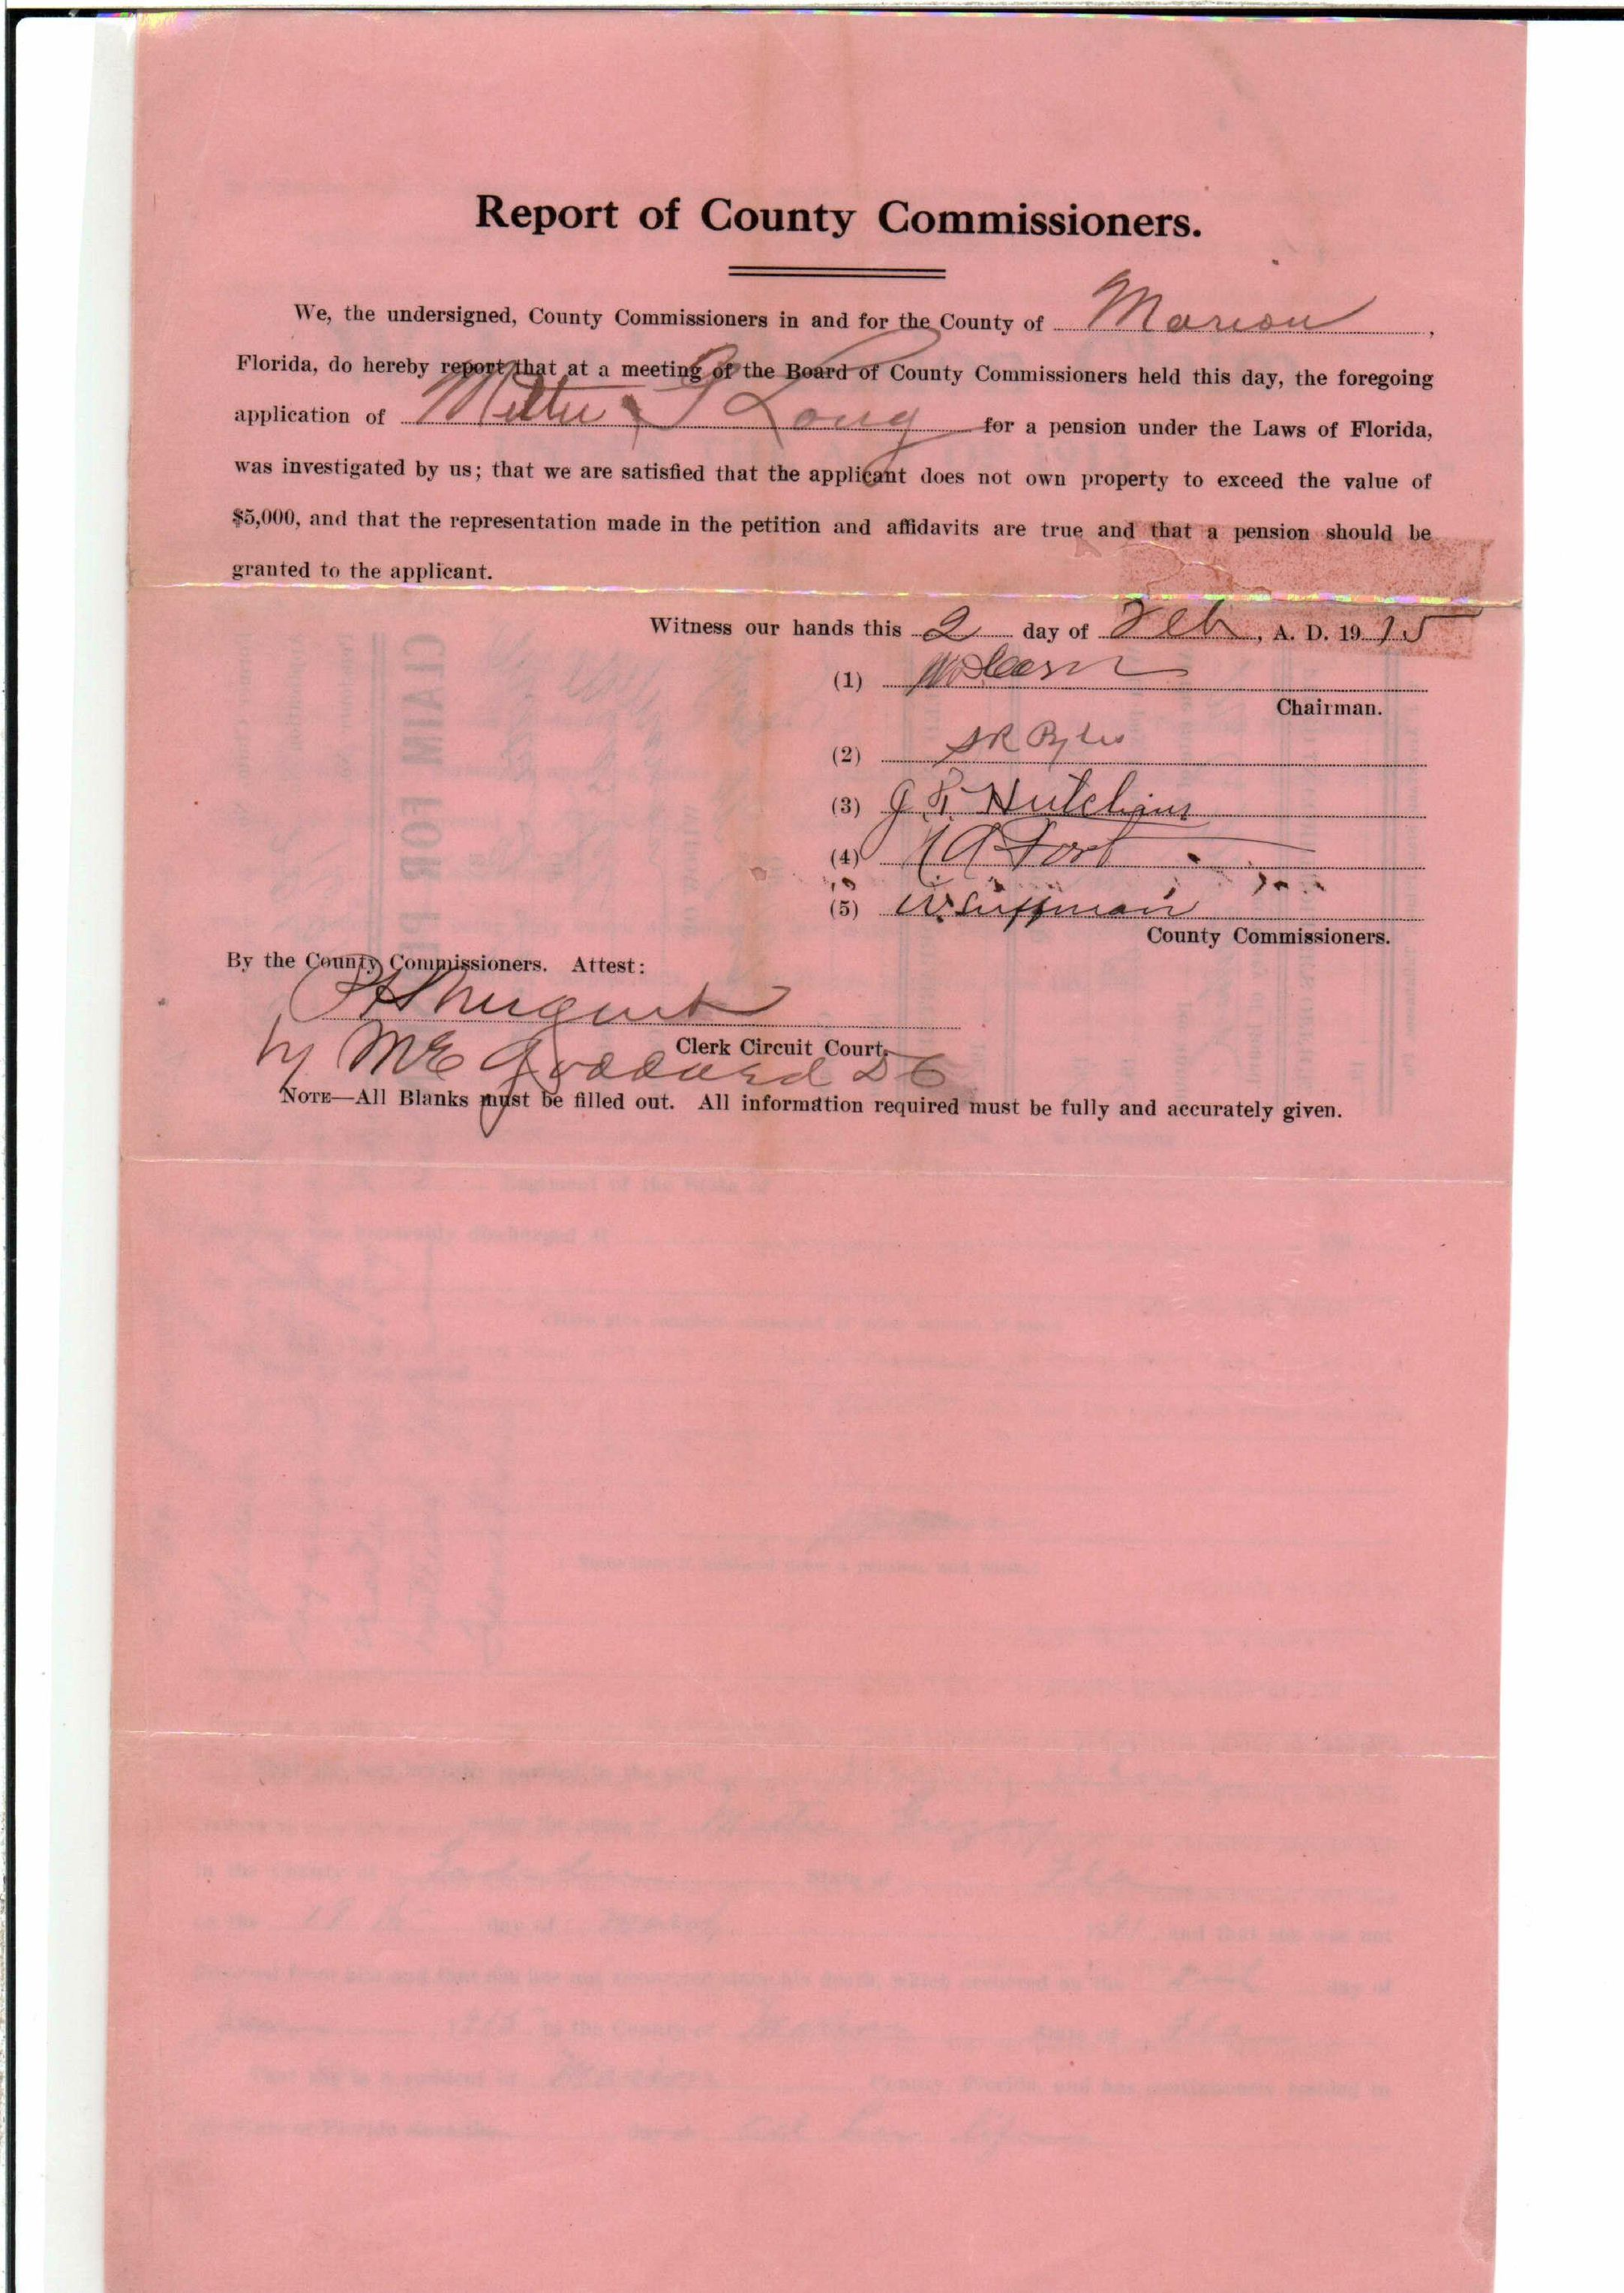 Report of County Commissioners.
We, the undersigned, County Commissioners in and for the County of Marion,
Florida, do hereby report that at a meeting of the Board of County Commissioners held this day, the foregoing
application of Long for a pension under the Laws of Florida,
was investigated by us; that we are satisfied that the applicant does not own property to exceed the value of
$5,000, and that the representation made in the petition and affidavits are true and that a pension should be
granted to the applicant.
Witness our hands this 2 day of Feb, A. D. 1915
(1)
Chairman.
(2) S R Pyles
(3) Hutchins
(4) Fort
(5)
County Commissioners.
By the County Commissioners. Attest:
Nugent
Clerk Circuit Court.
by M E Goddard D C
NOTE—All Blanks must be filled out. All information required must be fully and accurately given.